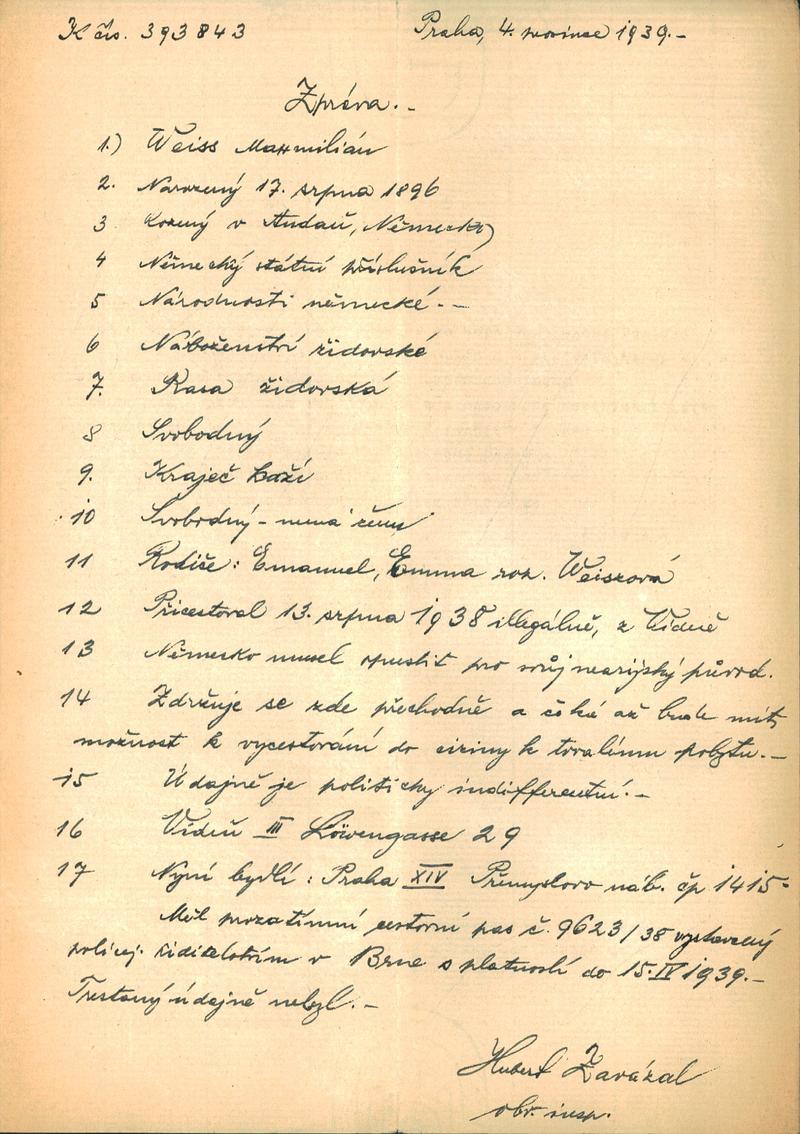 K čís. 393843
Praha, 4. prosince 1939.-
Zpráva.-
1.) Weiss Maxmilián
2. Narozený 17. srpna 1896
3 v Andau, Německo)
4 Německý státní příslušník
5 Národnosti německé.--
6 Náboženství židovské
7. Rasa židovská
8 Svobodný
9. Kraječ koží
10 Svobodný - nemá ženu
11 Rodiče: Emanuel, Emma roz. Weiszová
12 Přicestoval 13. srpna 1938 illegálně, z Vídně
13 Německo musel opustit pro svůj nearijský původ.
14 Zdržuje se zde přechodně a čeká až bude míti
možnost k vycestování do ciziny k trvalému pobytu.-
15 Údajně je politicky indifferentní.-
16 Vídeň III Löwengasse 29
17 Nyní bydlí: Praha XIV Přemyslovo náb. čp 1415-
Měl prozatímní cestovní pas č. 9623/38 vystavený
policej. ředitelstvím v Brne s platností do 15.IV 1939.-
Trestaný údajně nebyl.-
Hubert Zavázal
obv. insp.